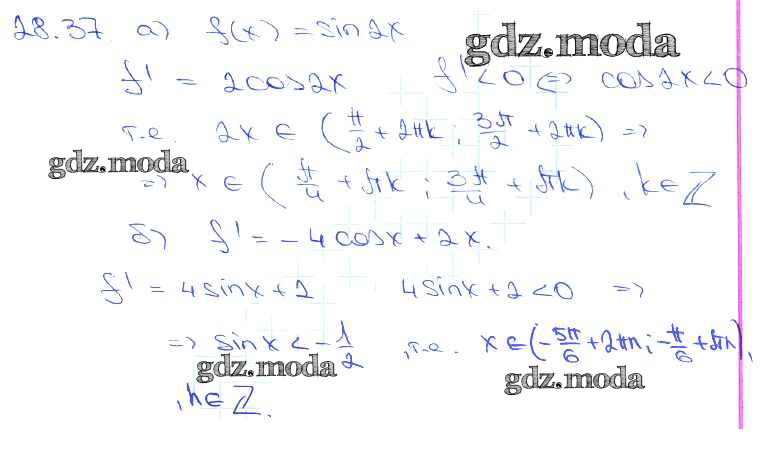 28.37 а) f(x) = sin 2x
gdz.moda
f' = 2cos2x f' < 0 <=> cos2x < 0
т.е. 2x ∈ (π/2 + 2πk ; 3π/2 + 2πk) =>
gdz.moda
=> x ∈ (π/4 + πk ; 3π/4 + πk) , k ∈ ℤ
б) f' = -4cosx + 2x.
f' = 4sinx + 2 4sinx + 2 < 0 =>
=> sinx < -1/2 , т.е. x ∈ (-5π/6 + 2πn ; -π/6 + πn),
gdz.moda
gdz.moda
, n ∈ ℤ.